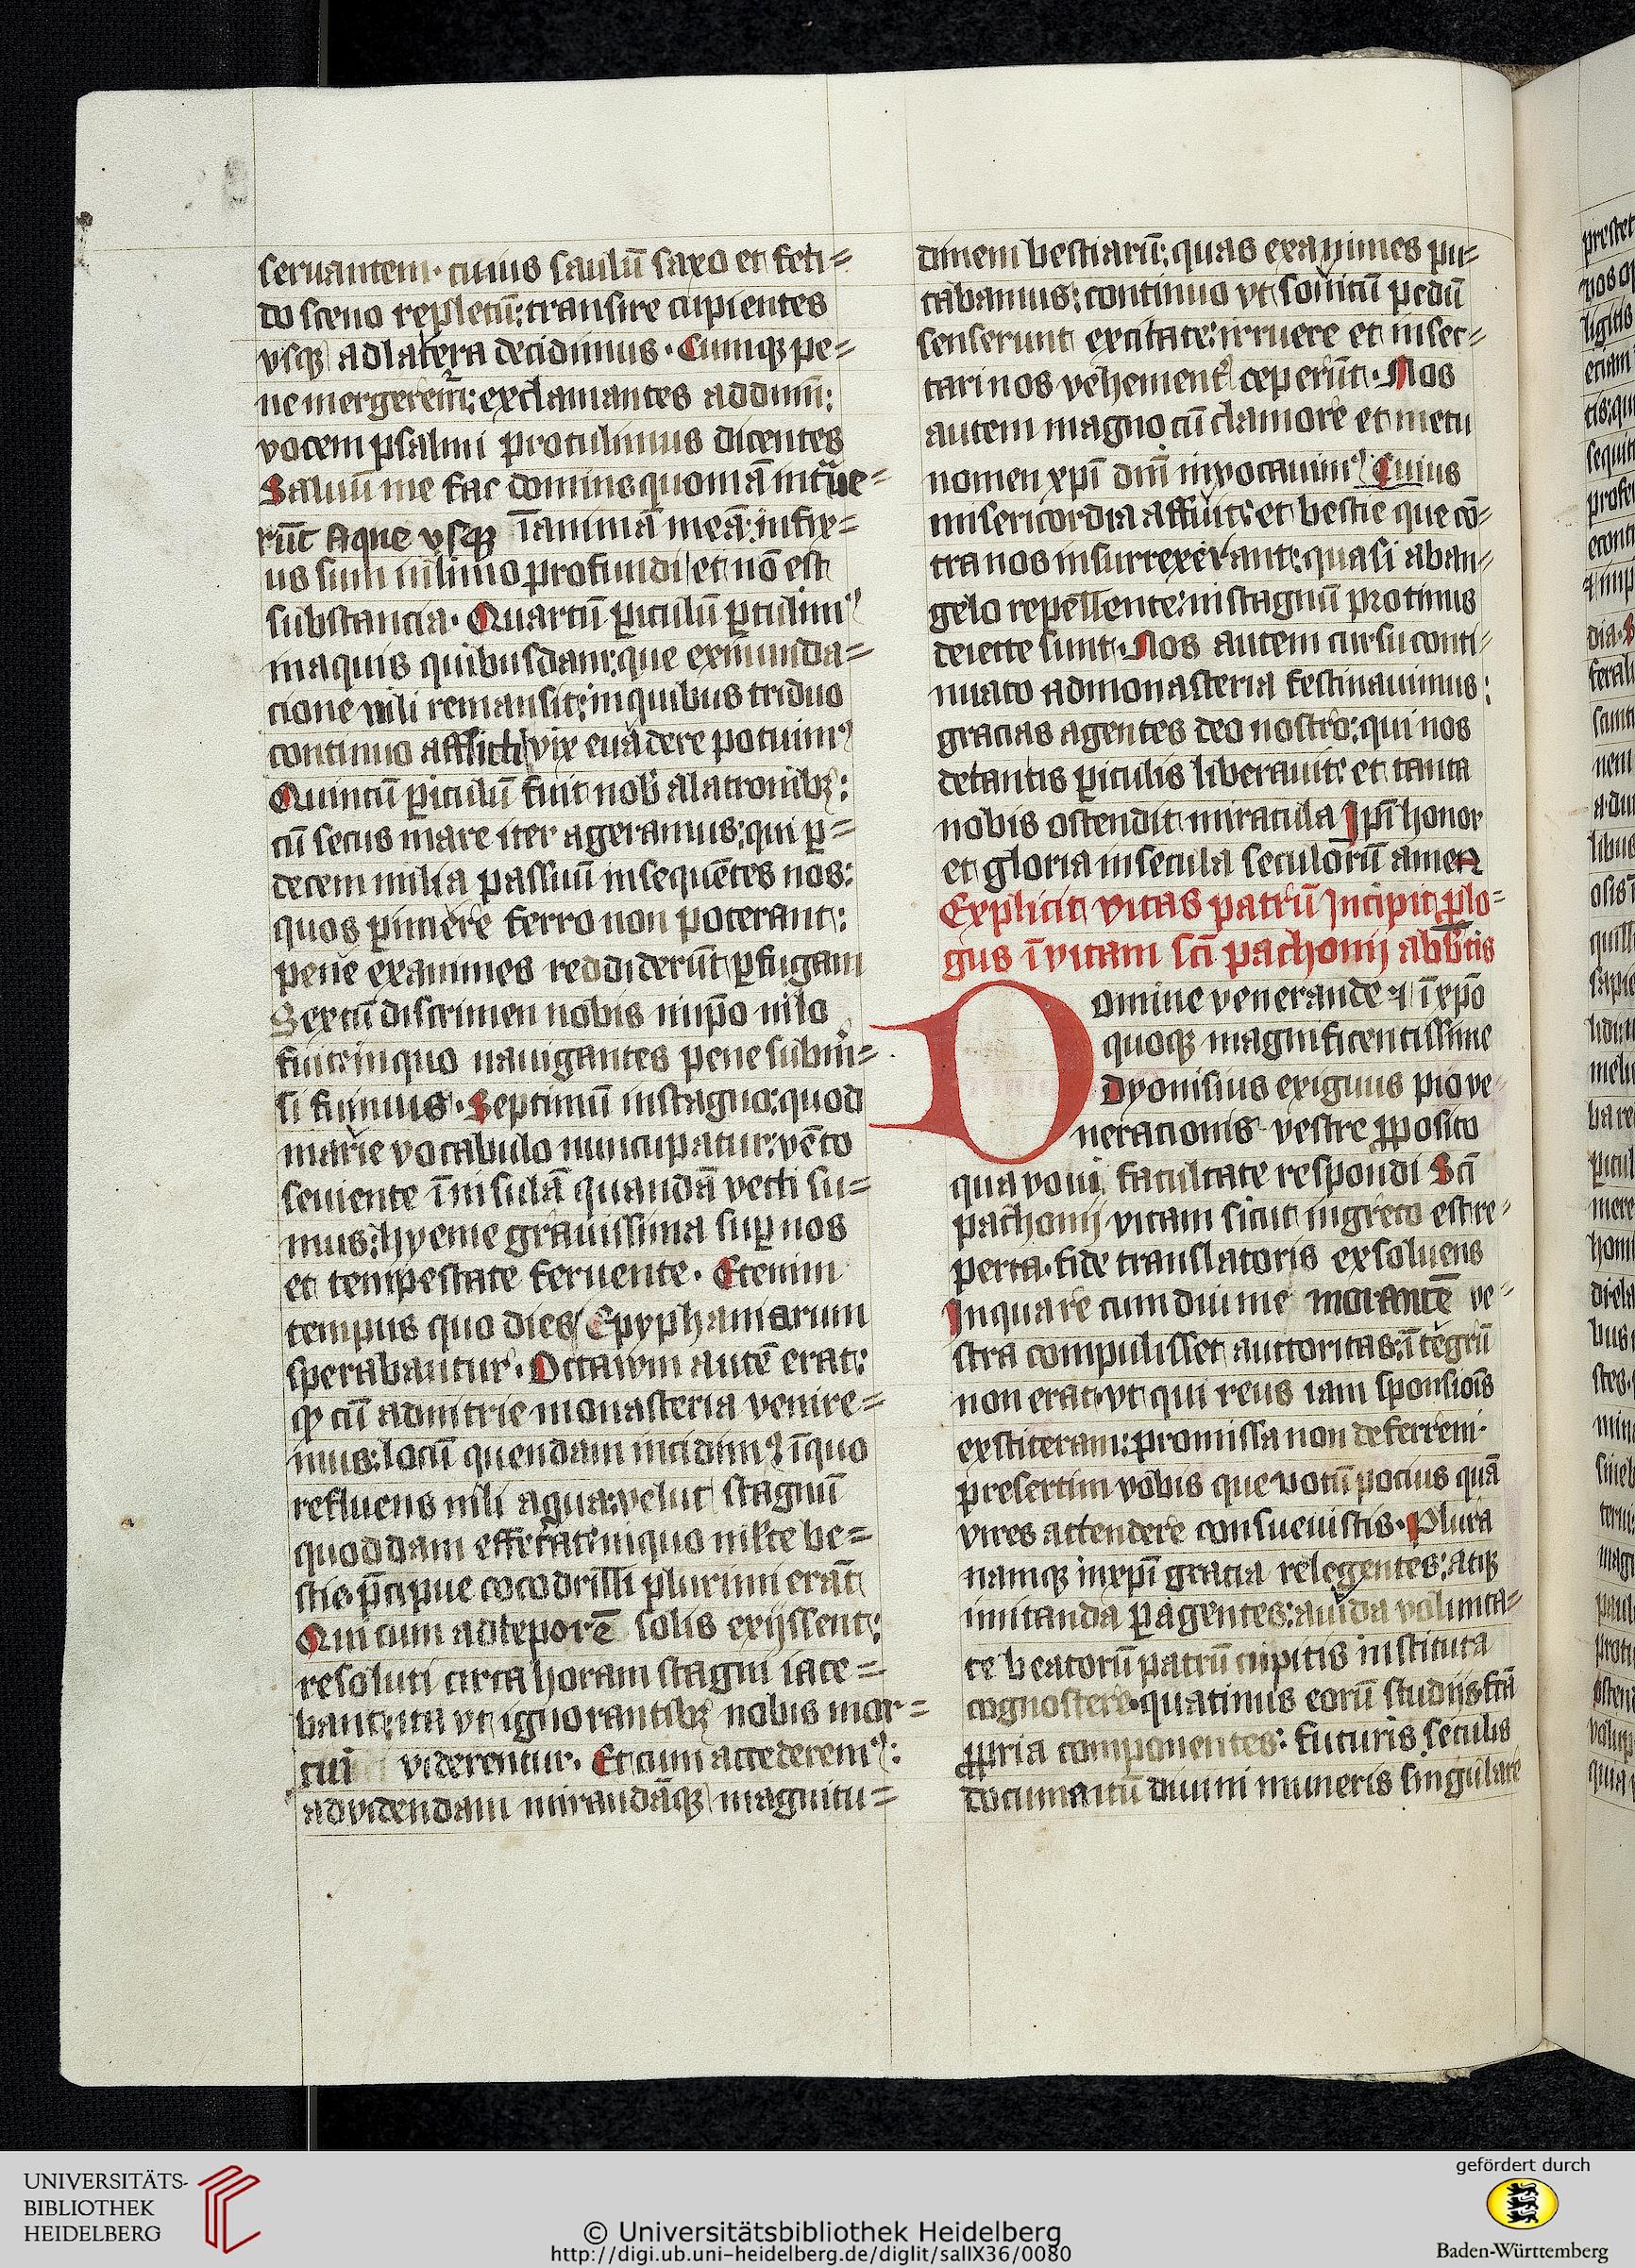 seruantem· cuius saulū saxo et feti=
do sceno repletū; transire cupientes
vsqꝫ ad latera decidimus· Cumqꝫ pe=
ne mergeremꝰ; exclamantes ad dnm̄;
vocem psalmi protulimus dicentes
Saluū me fac domine quoniā intraue=
rūt aque vsqꝫ ī animā meā; infix=
us sum in limo profundi et nō est
substancia· Quartū ꝑiculū ꝑtulimꝰ
in aquis quibusdam; que ex inunda=
cione nili remansit; in quibus triduo
continuo afflicti vix euadere potuimꝰ
Quintū ꝑiculū fuit nob̄ a latronibꝫ:
cū secus mare iter ageramus; qui ꝑ=
decem milia passuū insequētes nos:
quos ꝑimere ferro non poterant:
pene exanimes reddiderūt ꝑ fugam
Sextū discrimen nobis in ip̄o nilo
fuit; in quo nauigantes pene subm̄=
si fuimus· Septimū in stagno; quod
marie vocabulo nuncupatur; vēto
seuiente ī insulā quandā vecti su=
mus; hyeme grauissima suꝑ nos
et tempestate feruente· Etenim
tempus quo dies Epyphaniarum
sperabantur· Octawm autē erat:
qꝫ cū ad nitrie monasteria venire=
mus: locū quendam incidimꝰ; ī quo
refluens nili aqua; velut stagnū
quoddam effecerat; in quo miste be=
stie· p̄cipue cocodrilli plurimi erāt
Qui cum ad teporē solis exijssent;
resoluti circa horam stagni iace=
bant; ita vt ignorantibꝫ nobis mor=
tui viderentur· Et cum accederemꝰ:
ad videndam mirandāqꝫ magnitu=
dinem bestiarū; quas exanimes pu=
tabamus; continuo vt sonitū pedū
senserunt excitate: irruere et insec=
tari nos vehementꝰ ceperūt· Nos
autem magno cū clamore et metu
nomen xp̄i dnī inuocauimꝰ Cuius
misericordia affuit; et bestie que cō=
tra nos insurrexerant; quasi ab an=
gelo repellente; in stagnū protinus
deiecte sunt· Nos autem cursu conti=
nuato ad monasteria festinauimus;
gracias agentes deo nostro; qui nos
de tantis ꝑiculis liberauit; et tanta
nobis ostendit miracula Ip̄i honor
et gloria in secula seculorū amen
Explicit vitas patrū Incipit ꝓlo=
gus ī vitam sc̄i pachomij abb̄tis
Domine venerande ⁊ ī xp̄o
quoqꝫ magnificentissime
Dyonisius exiguus pio ve
nerationis vestre ꝓposito
qua voui facultate respondi Sc̄i
pachomij vitam sicut in greco est re=
perta· fide translatoris exsoluens
In qua re cum diu me morantē ve=
stra compulisset auctoritas; ītegrū
non erat; vt qui reus iam sponsiois
exstiteram; promissa non deferrem·
presertim vobis que votū pocius quā
vires attendere consueuistis· Plura
namqꝫ in xp̄i gracia relegentes; atqꝫ
imitanda ꝑagentes; auida volunta=
te beatorū patrū cupitis instituta
cognoscere· quatinus eorū studijs fc̄ā
ꝓpria componentes: futuris seculis
documentū diuini muneris singulare
UNIVERSITÄTS-
BIBLIOTHEK
HEIDELBERG
© Universitätsbibliothek Heidelberg
http://digi.ub.uni-heidelberg.de/diglit/salIX36/0080
gefördert durch
Baden-Württemberg